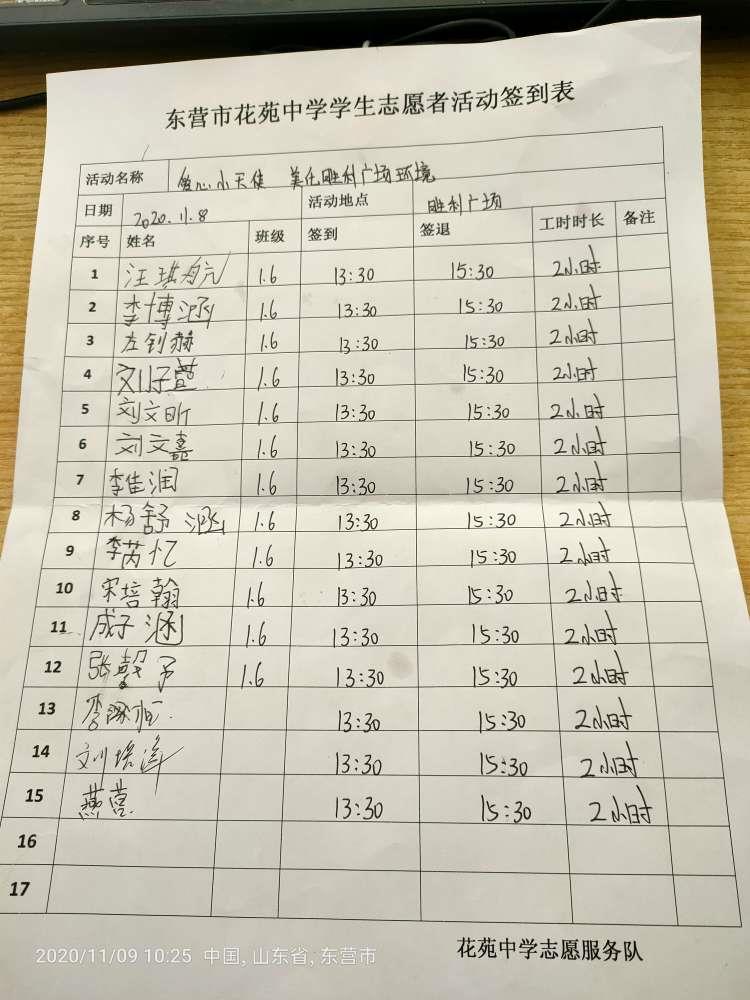 东营市花苑中学学生志愿者活动签到表
活动名称 爱心小天使 美化胜利广场环境
日期 2020.11.8 活动地点 胜利广场
序号 姓名 班级 签到 签退 工时时长 备注
1 汪琪航 1.6 13:30 15:30 2小时
2 李博涵 1.6 13:30 15:30 2小时
3 左钊赫 1.6 13:30 15:30 2小时
4 刘子萱 1.6 13:30 15:30 2小时
5 刘文昕 1.6 13:30 15:30 2小时
6 刘文嘉 1.6 13:30 15:30 2小时
7 李佳润 1.6 13:30 15:30 2小时
8 杨舒涵 1.6 13:30 15:30 2小时
9 李芮忆 1.6 13:30 15:30 2小时
10 宋培翰 1.6 13:30 15:30 2小时
11 成子涵 1.6 13:30 15:30 2小时
12 张馨予 1.6 13:30 15:30 2小时
13 李 13:30 15:30 2小时
14 刘 13:30 15:30 2小时
15 燕营 13:30 15:30 2小时
16
17
花苑中学志愿服务队
2020/11/09 10:25 中国,山东省,东营市